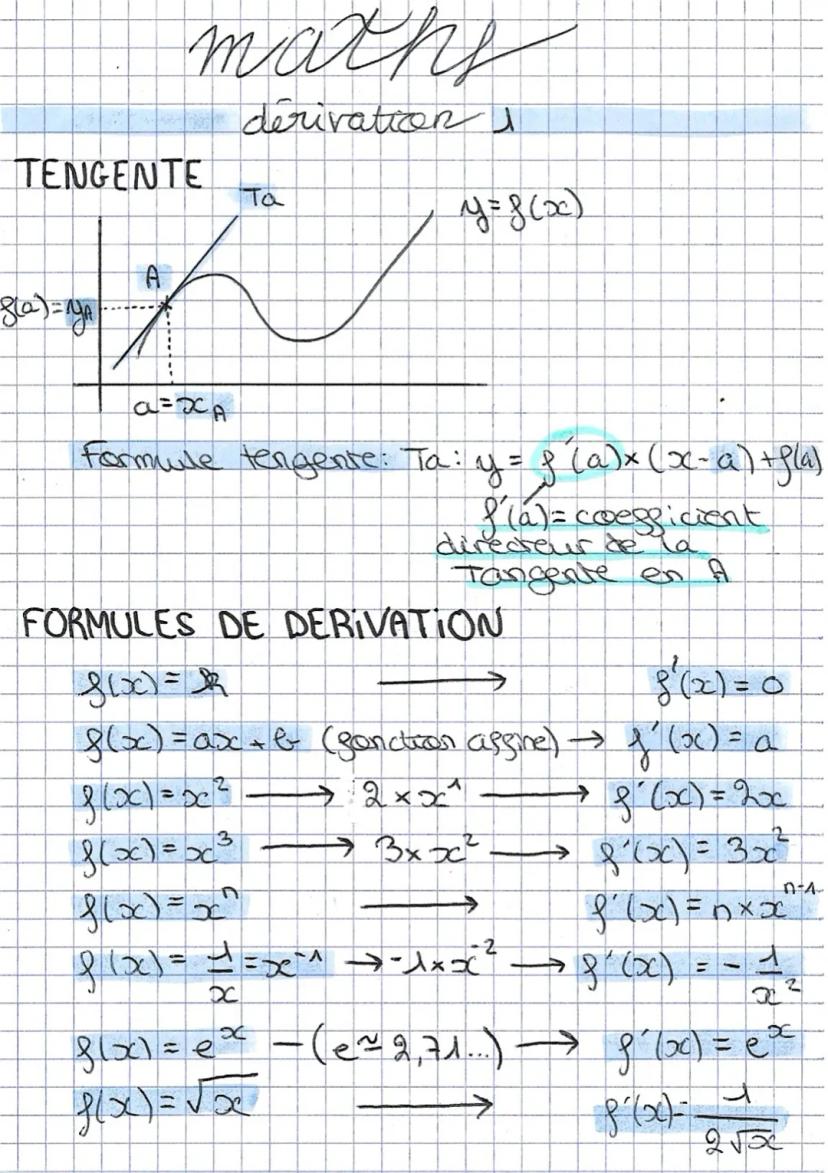 maths
dérivation 1
TENGENTE
Ta
y = f(x)
A
f(a) = yA
a = xA
Formule tengente: Ta: y = f'(a) × (x - a) + f(a)
f'(a) = coefficient
directeur de la
Tangente en A
FORMULES DE DERIVATION
f(x) = k ⟶ f'(x) = 0
f(x) = ax + b (fonction affine) → f'(x) = a
f(x) = x² ⟶ 2 × x¹ ⟶ f'(x) = 2x
f(x) = x³ ⟶ 3 × x² ⟶ f'(x) = 3x²
f(x) = xⁿ ⟶ f'(x) = n × xⁿ⁻¹
f(x) = 1/x = x⁻¹ → -1 × x⁻² ⟶ f'(x) = - 1/x²
f(x) = eˣ — (e ≃ 2,71...) ⟶ f'(x) = eˣ
f(x) = √x ⟶ f'(x) = 1/(2√x)